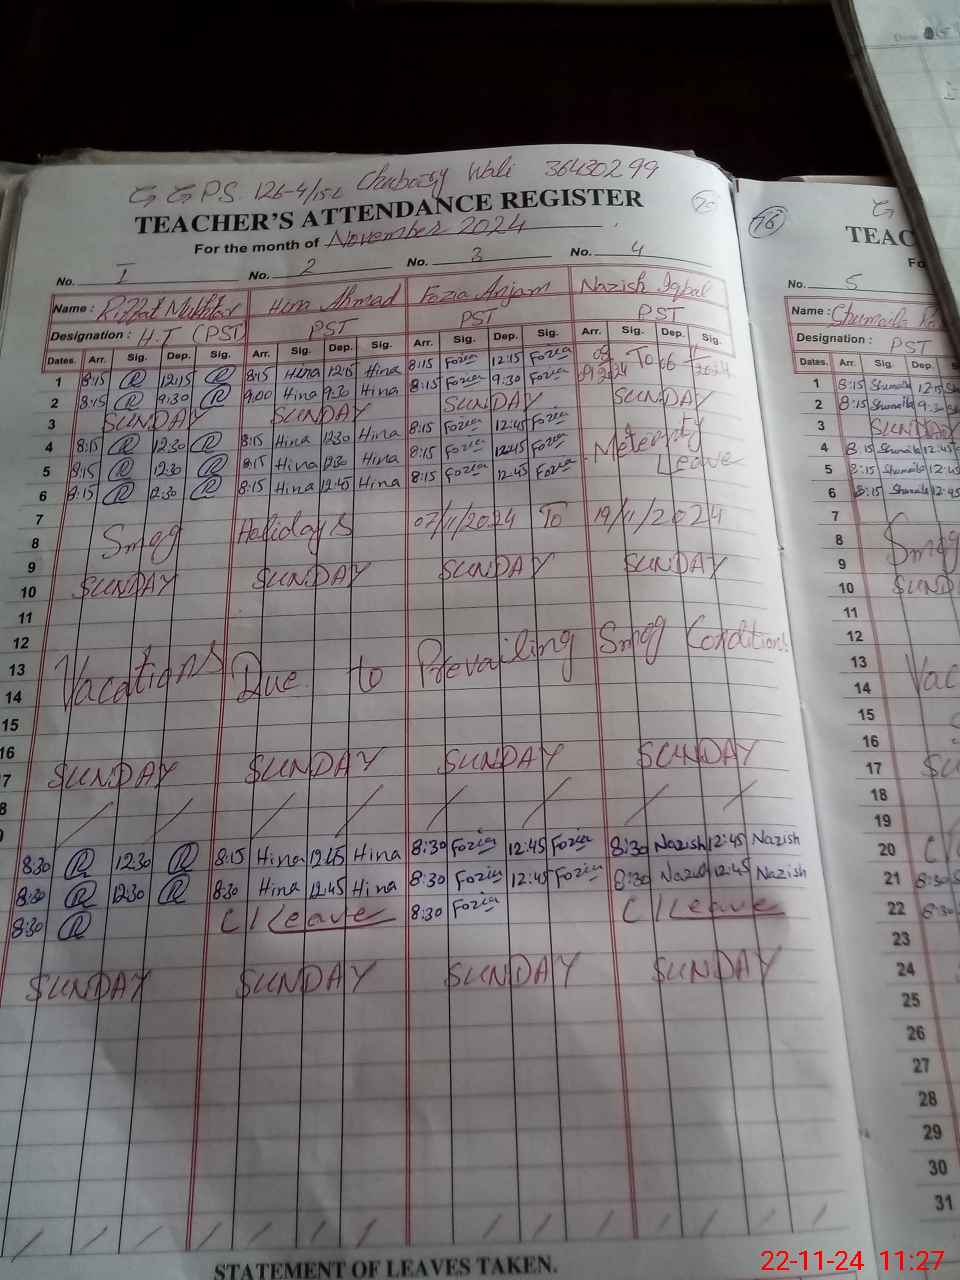 P.S. 126-4/15-L Chubarjy Wali 36430299
TEACHER'S ATTENDANCE REGISTER 75
For the month of November 2024
No. 1 No. 2 No. 3 No. 4
Name: Riffat Mukhtar Hina Ahmad Fozia Anjam Nazish Iqbal
Designation: H.T (PST) PST PST PST
Dates. Arr. Sig. Dep. Sig. Arr. Sig. Dep. Sig. Arr. Sig. Dep. Sig. Arr. Sig. Dep. Sig.
1 8:15 R 12:15 R 8:15 Hina 12:15 Hina 8:15 Fozia 12:15 Fozia To
2 8:15 R 9:30 R 9:00 Hina 9:30 Hina 8:15 Fozia 9:30 Fozia
3 SUNDAY SUNDAY SUNDAY SUNDAY
4 8:15 R 12:30 R 8:15 Hina 12:30 Hina 8:15 Fozia 12:45 Fozia
5 8:15 R 12:30 R 8:15 Hina 12:30 Hina 8:15 Fozia 12:45 Fozia Meternty
6 8:15 R 12:30 R 8:15 Hina 12:45 Hina 8:15 Fozia 12:45 Fozia Leave
7
8 Smog Holidays 07/11/2024 To 19/11/2024
9
10 SUNDAY SUNDAY SUNDAY SUNDAY
11
12
13 Vacations Due to Prevailing Smog Conditions
14
15
16
17 SUNDAY SUNDAY SUNDAY SUNDAY
8
8:30 R 12:30 R 8:15 Hina 12:45 Hina 8:30 Fozia 12:45 Fozia 8:30 Nazish 12:45 Nazish
8:30 R 12:30 R 8:30 Hina 12:45 Hina 8:30 Fozia 12:45 Fozia 8:30 Nazish 12:45 Nazish
8:30 R C/Leave 8:30 Fozia C/Leave
SUNDAY SUNDAY SUNDAY SUNDAY
STATEMENT OF LEAVES TAKEN.
76
TEAC
Fo
No. 5
Name: Shumaila
Designation: PST
Dates. Arr. Sig. Dep.
1 8:15 Shumaila 12:15
2 8:15 Shumaila 9:30
3 SUNDAY
4 8:15 Shumaila 12:45
5 8:15 Shumaila 12:45
6 8:15 Shumaila 12:45
7
8 Smog
9
10 SUND
11
12
13 Vac
14
15
16
17 SU
18
19
20
21 8:30
22 8:30
23
24
25
26
27
28
29
30
31
22-11-24 11:27